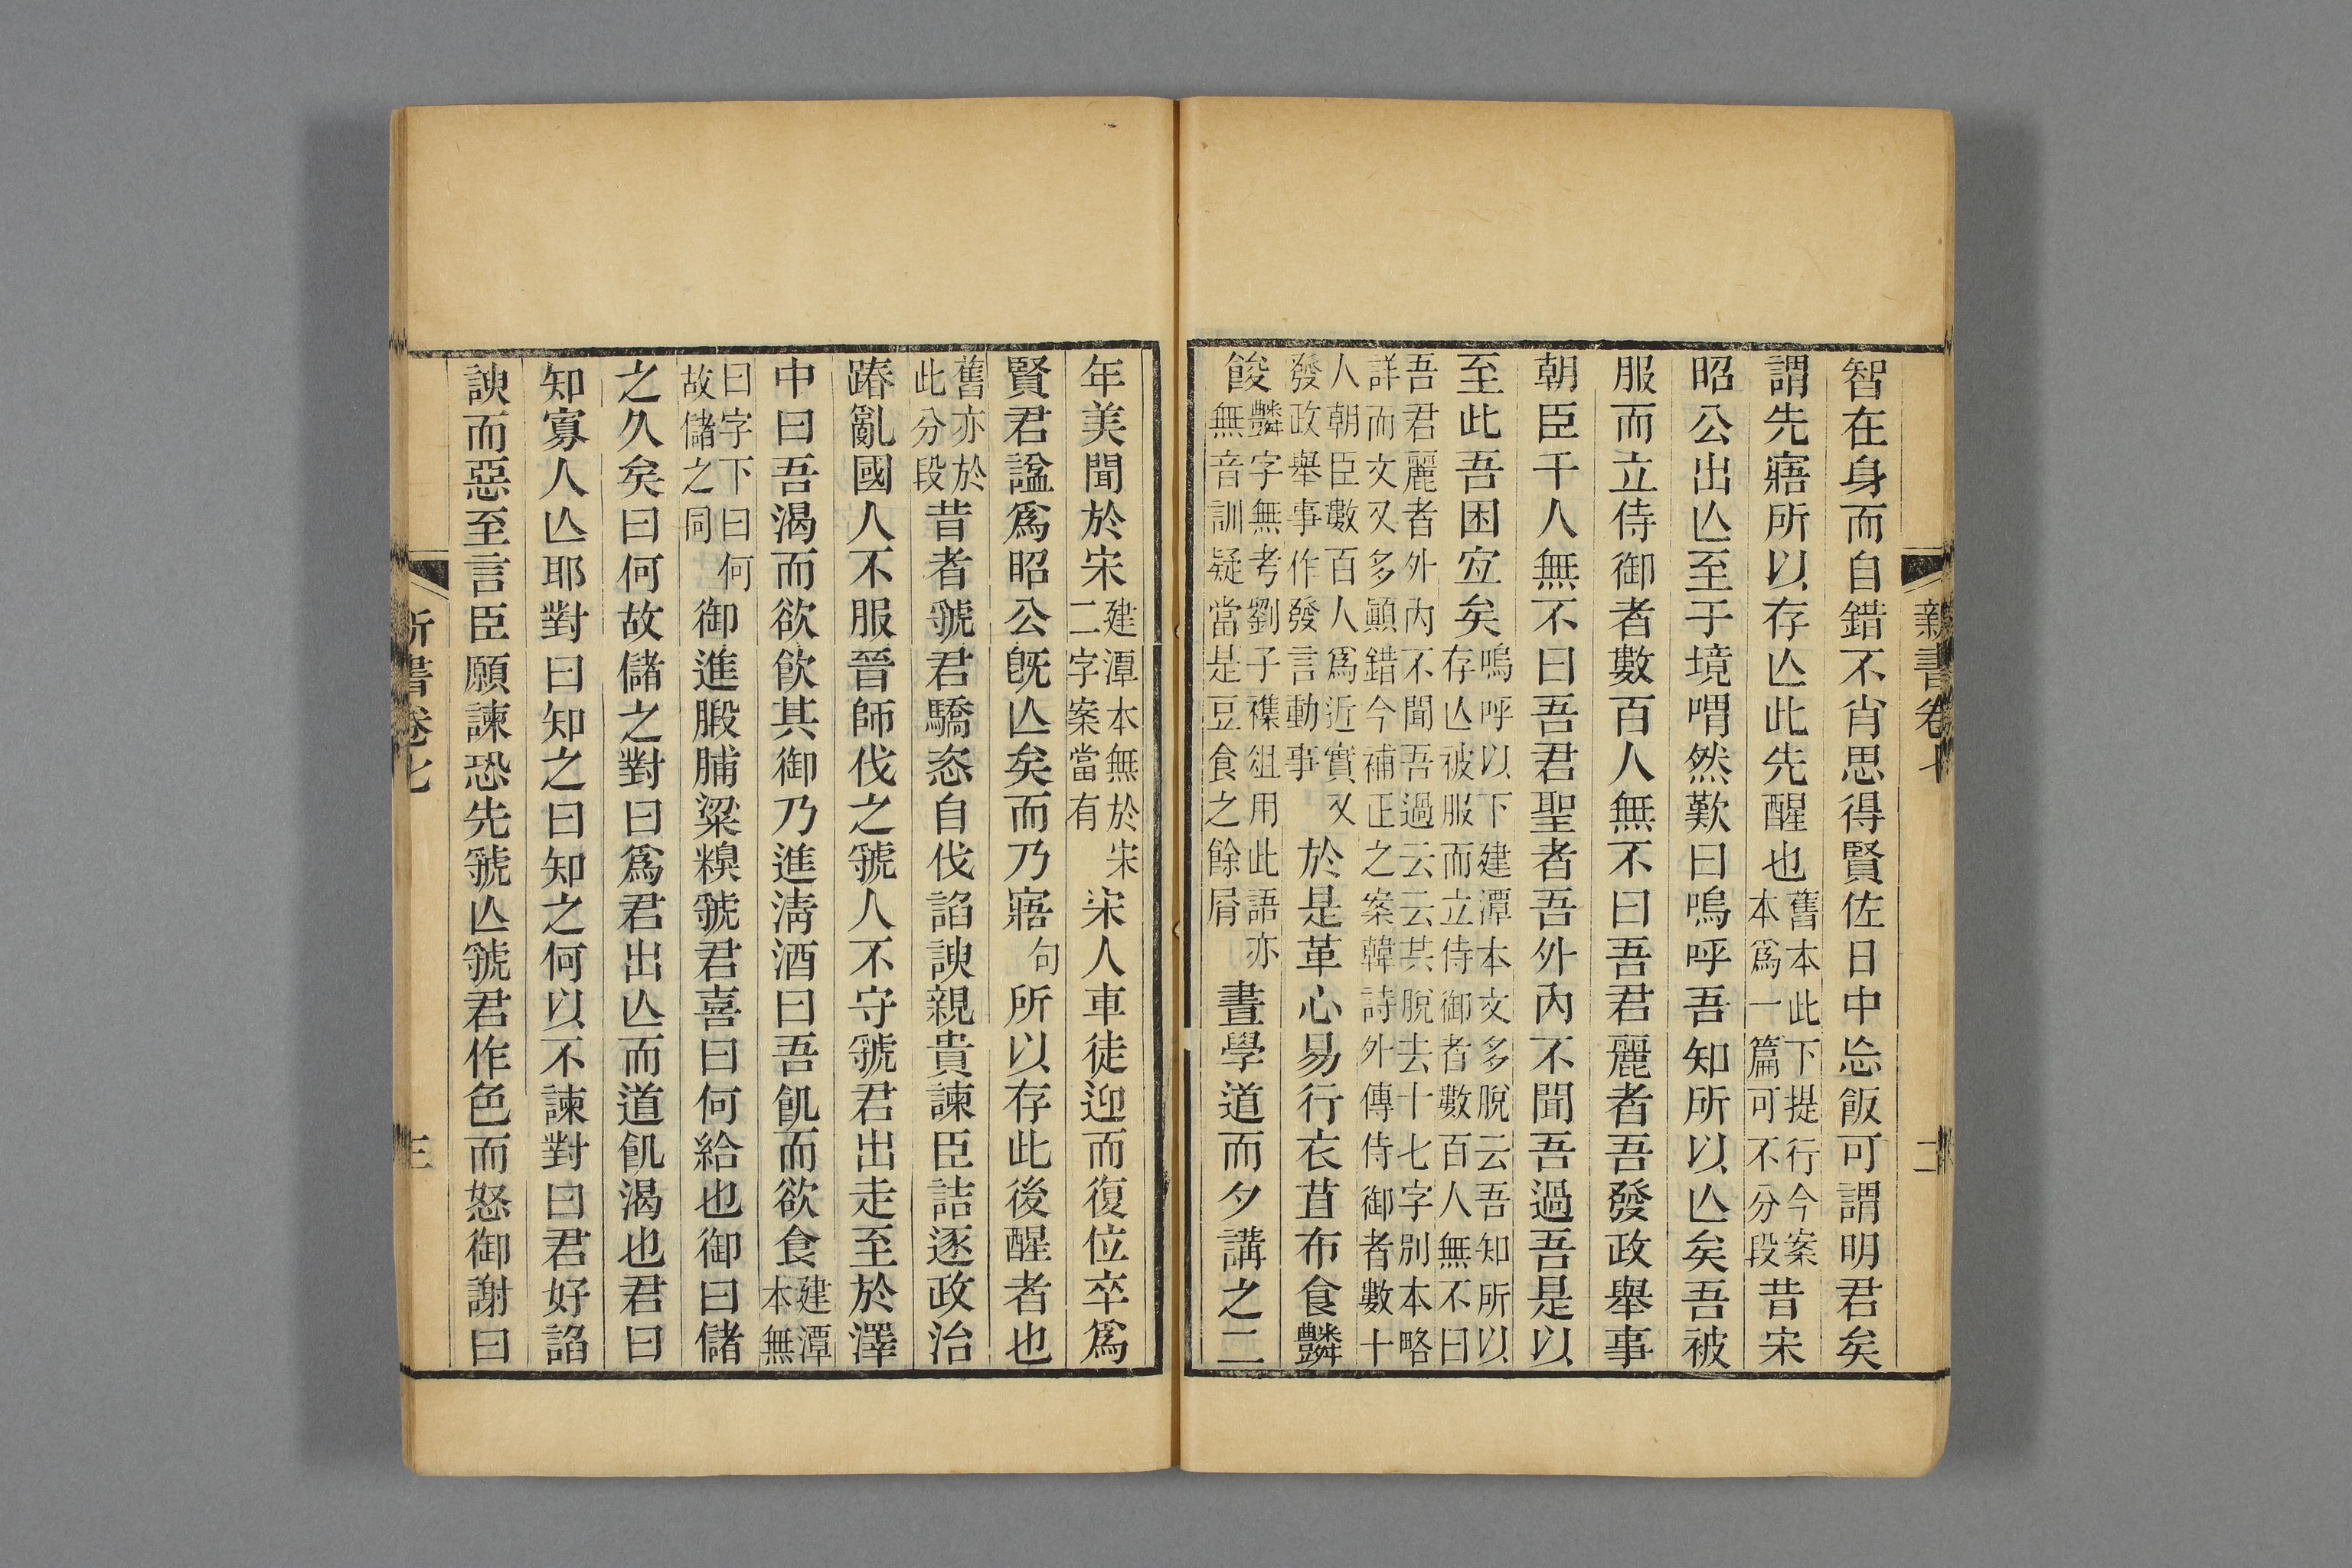 新書卷七 二
智在身而自錯不肖思得賢佐日中忘飯可謂明君矣
謂先寤所以存亾此先醒也舊本此下提行今案本爲一篇可不分段昔宋
昭公出亾至于境喟然歎曰嗚呼吾知所以亾矣吾被
服而立侍御者數百人無不曰吾君麗者吾發政舉事
朝臣千人無不曰吾君聖者吾外內不聞吾過吾是以
至此吾困宐矣嗚呼以下建潭本文多脫云吾知所以存亾被服而立侍御者數百人無不曰
吾君麗者外內不聞吾過云云其脫去十七字別本略詳而文又多顚錯今補正之案韓詩外傳侍御者數十
人朝臣數百人爲近實又發政舉事作發言動事於是革心易行衣苴布食䴰
餕䴰字無考劉子襍俎用此語亦無音訓疑當是豆食之餘屑晝學道而夕講之二
年美聞於宋建潭本無於宋二字案當有宋人車徒迎而復位卒爲
賢君諡爲昭公旣亾矣而乃寤句所以存此後醒者也
舊亦於此分段昔者虢君驕恣自伐諂諛親貴諫臣詰逐政治
踳亂國人不服晉師伐之虢人不守虢君出走至於澤
中曰吾渴而欲飮其御乃進淸酒曰吾飢而欲食建潭本無
曰字下曰何故儲之同御進腶脯粱糗虢君喜曰何給也御曰儲
之久矣曰何故儲之對曰爲君出亾而道飢渴也君曰
知寡人亾耶對曰知之曰知之何以不諫對曰君好諂
諛而惡至言臣願諫恐先虢亾虢君作色而怒御謝曰
新書卷七 三